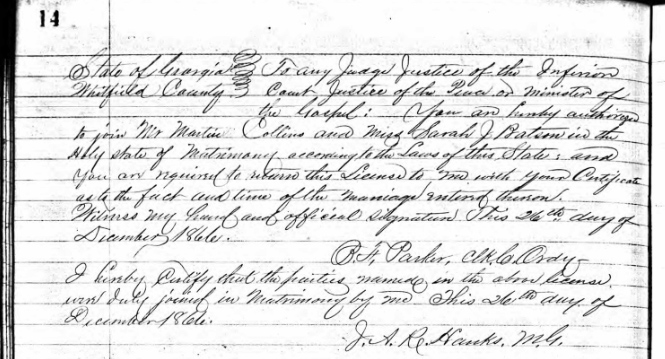 14
State of Georgia To any Judge Justice of the Inferior
Whitfield County Court Justice of the Peace or minister of
the Gospel: You are hereby authorized
to join Mr Martin Collins and Miss Sarah J Batson in the
Holy state of Matrimony according to the Laws of this State; and
you are required to return this License to me with your Certificate
as to the fact and time of the marriage entered thereon.
Witness my hand and official signature This 26th day of
December 1866.
B. F. Parker, Clk C. Ordy-
I hereby Certify that the parties named in the above license
were duly joined in Matrimony by me This 26th day of
December 1866.
J. A. R. Hanks, M.G.